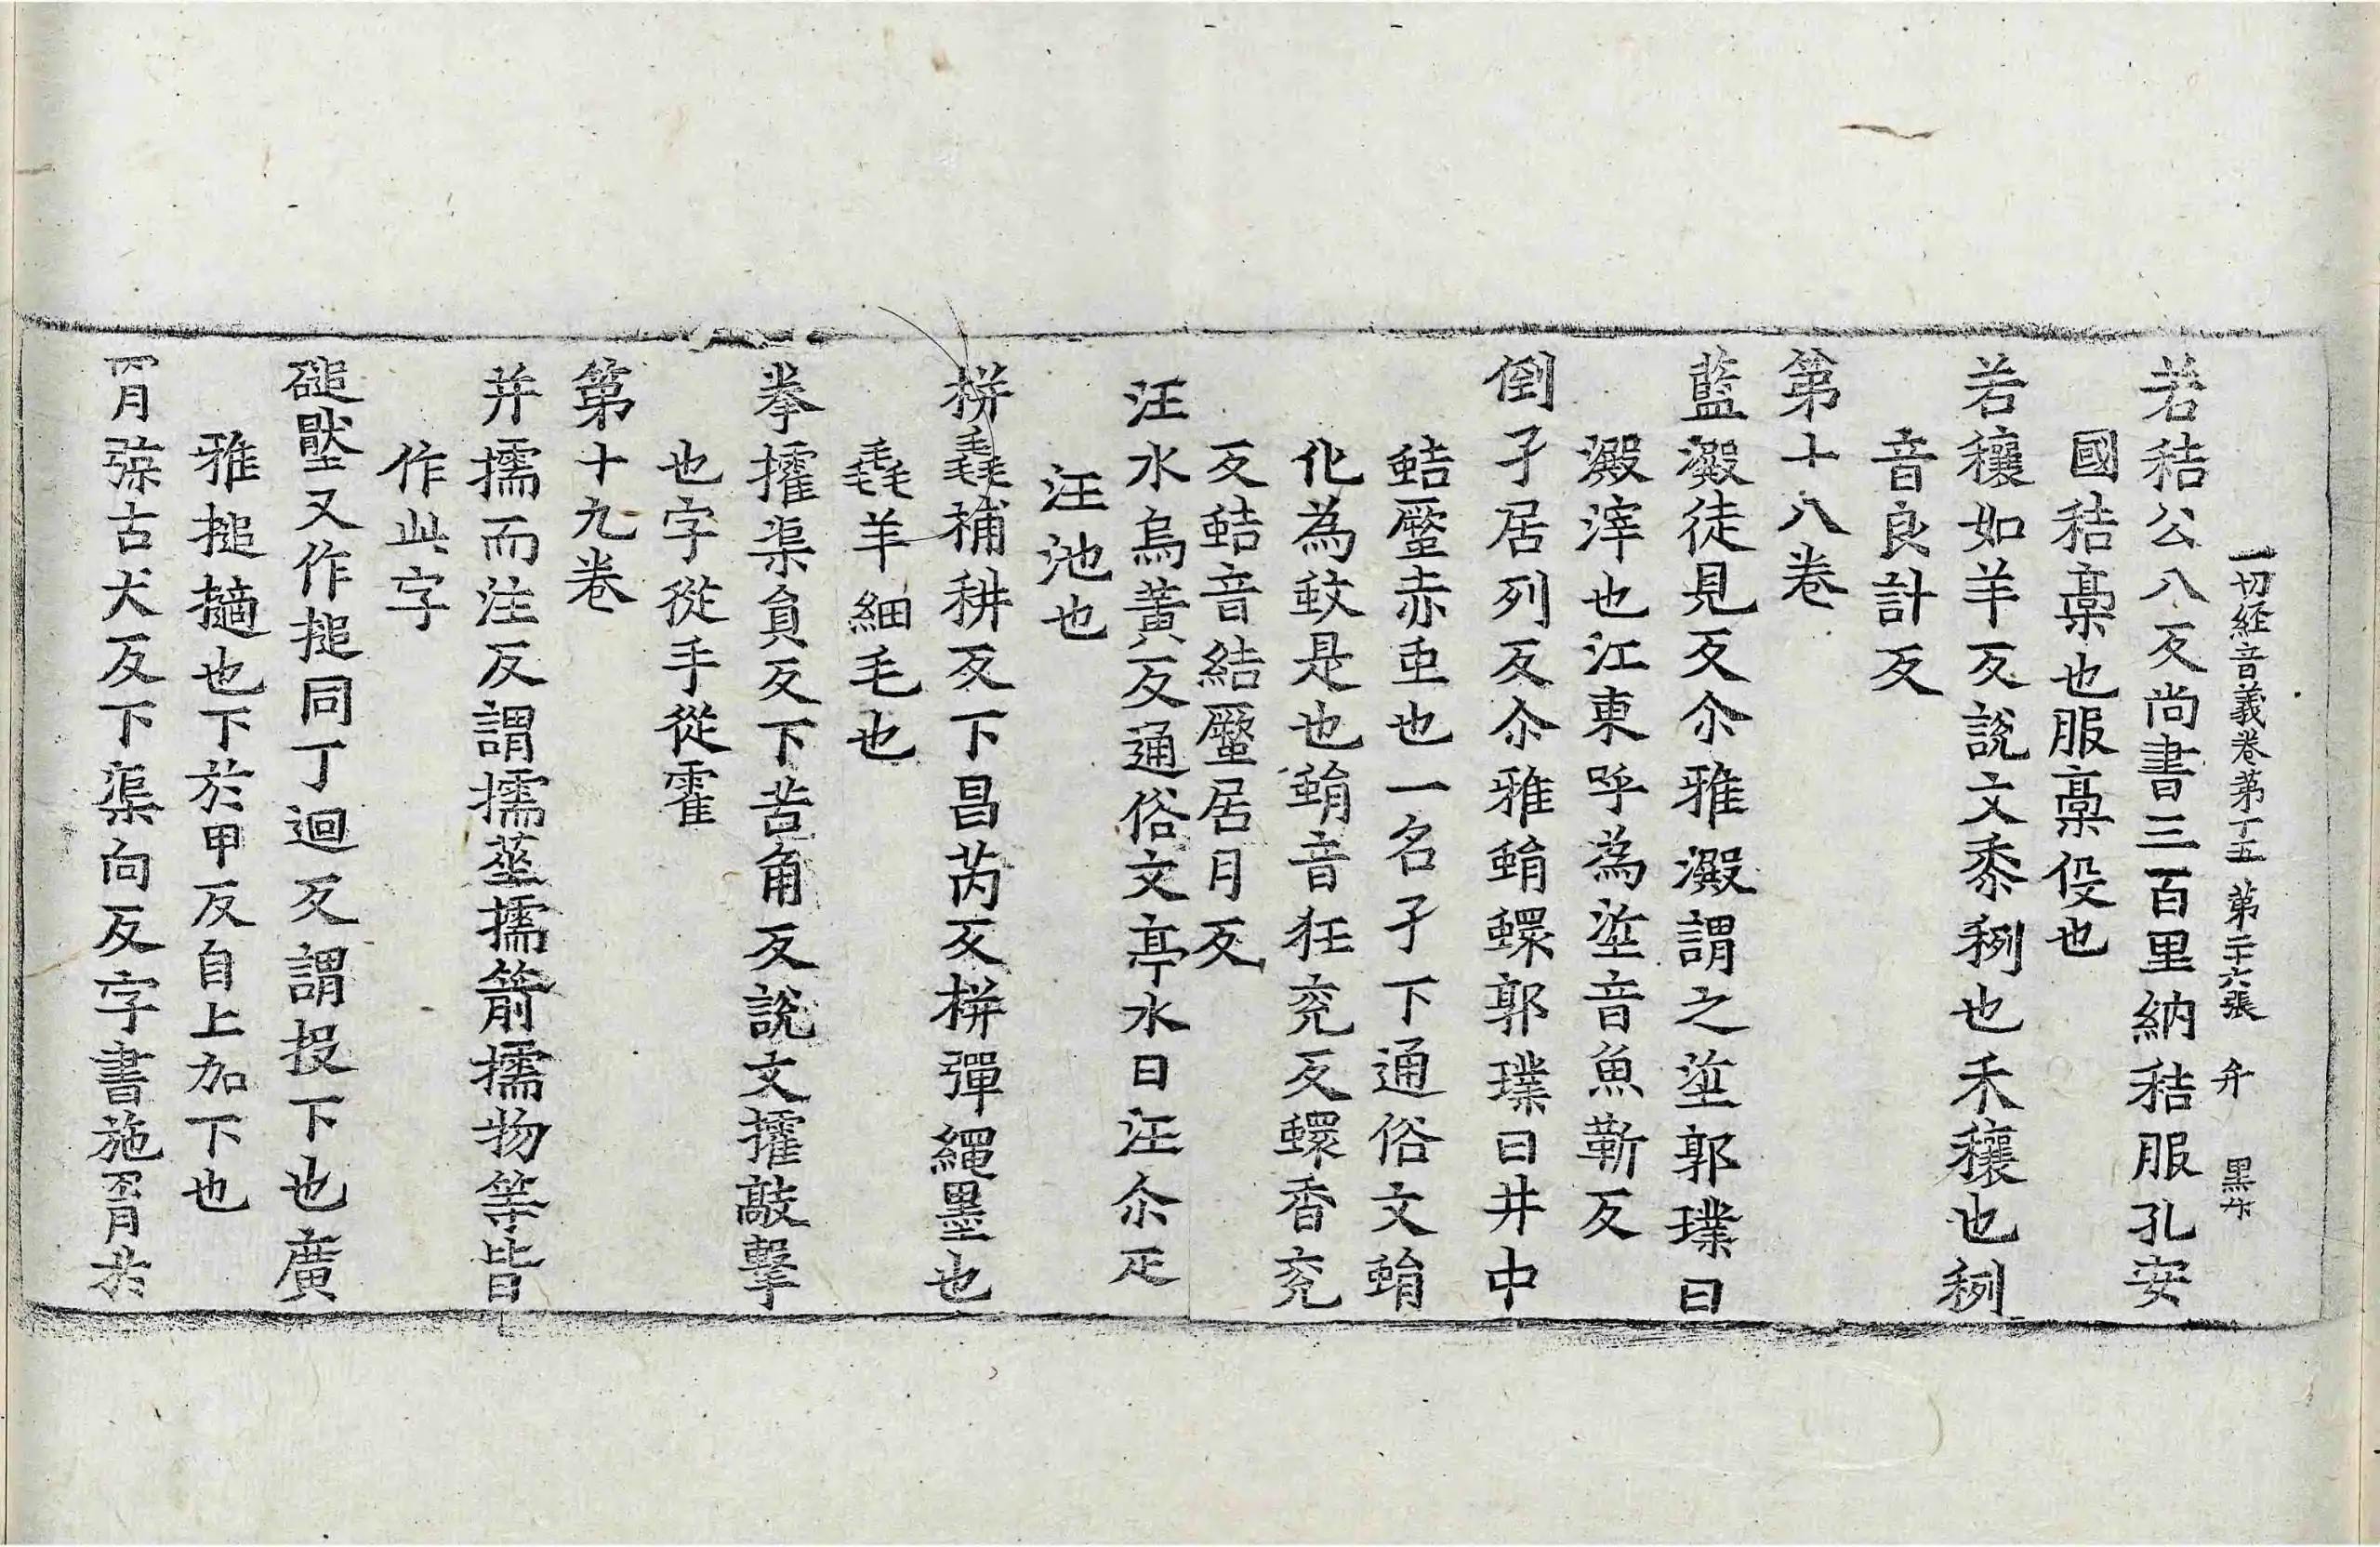 一切経音義卷第十五 第二十六張 弁 黑作
若秸公八反尚書三百里納秸服孔安
國秸藁也服藁役也
若穰如羊反說文黍䅀也禾穰也䅀
音良計反
第十八卷
藍澱徒見反尒雅澱謂之垽郭璞曰
澱滓也江東呼為垽音魚靳反
倒孑居列反尒雅蜎蠉郭璞曰井中
蛣蟨赤䖝也一名孑下通俗文蜎
化為蚊是也蜎音狂兖反蠉香兖
反蛣音結蟨居月反
汪水烏黃反通俗文亭水曰汪尒疋
汪池也
栟毳補耕反下昌芮反栟彈繩墨也
毳羊細毛也
拳㩁渠負反下苦角反說文㩁敲擊
也字從手從霍
第十九卷
并擩而注反謂擩莖擩箭擩物等皆
作此字
磓壓又作搥同丁迴反謂投下也廣
雅搥擿也下於甲反自上加下也
罥弶古犬反下渠向反字書施罥於